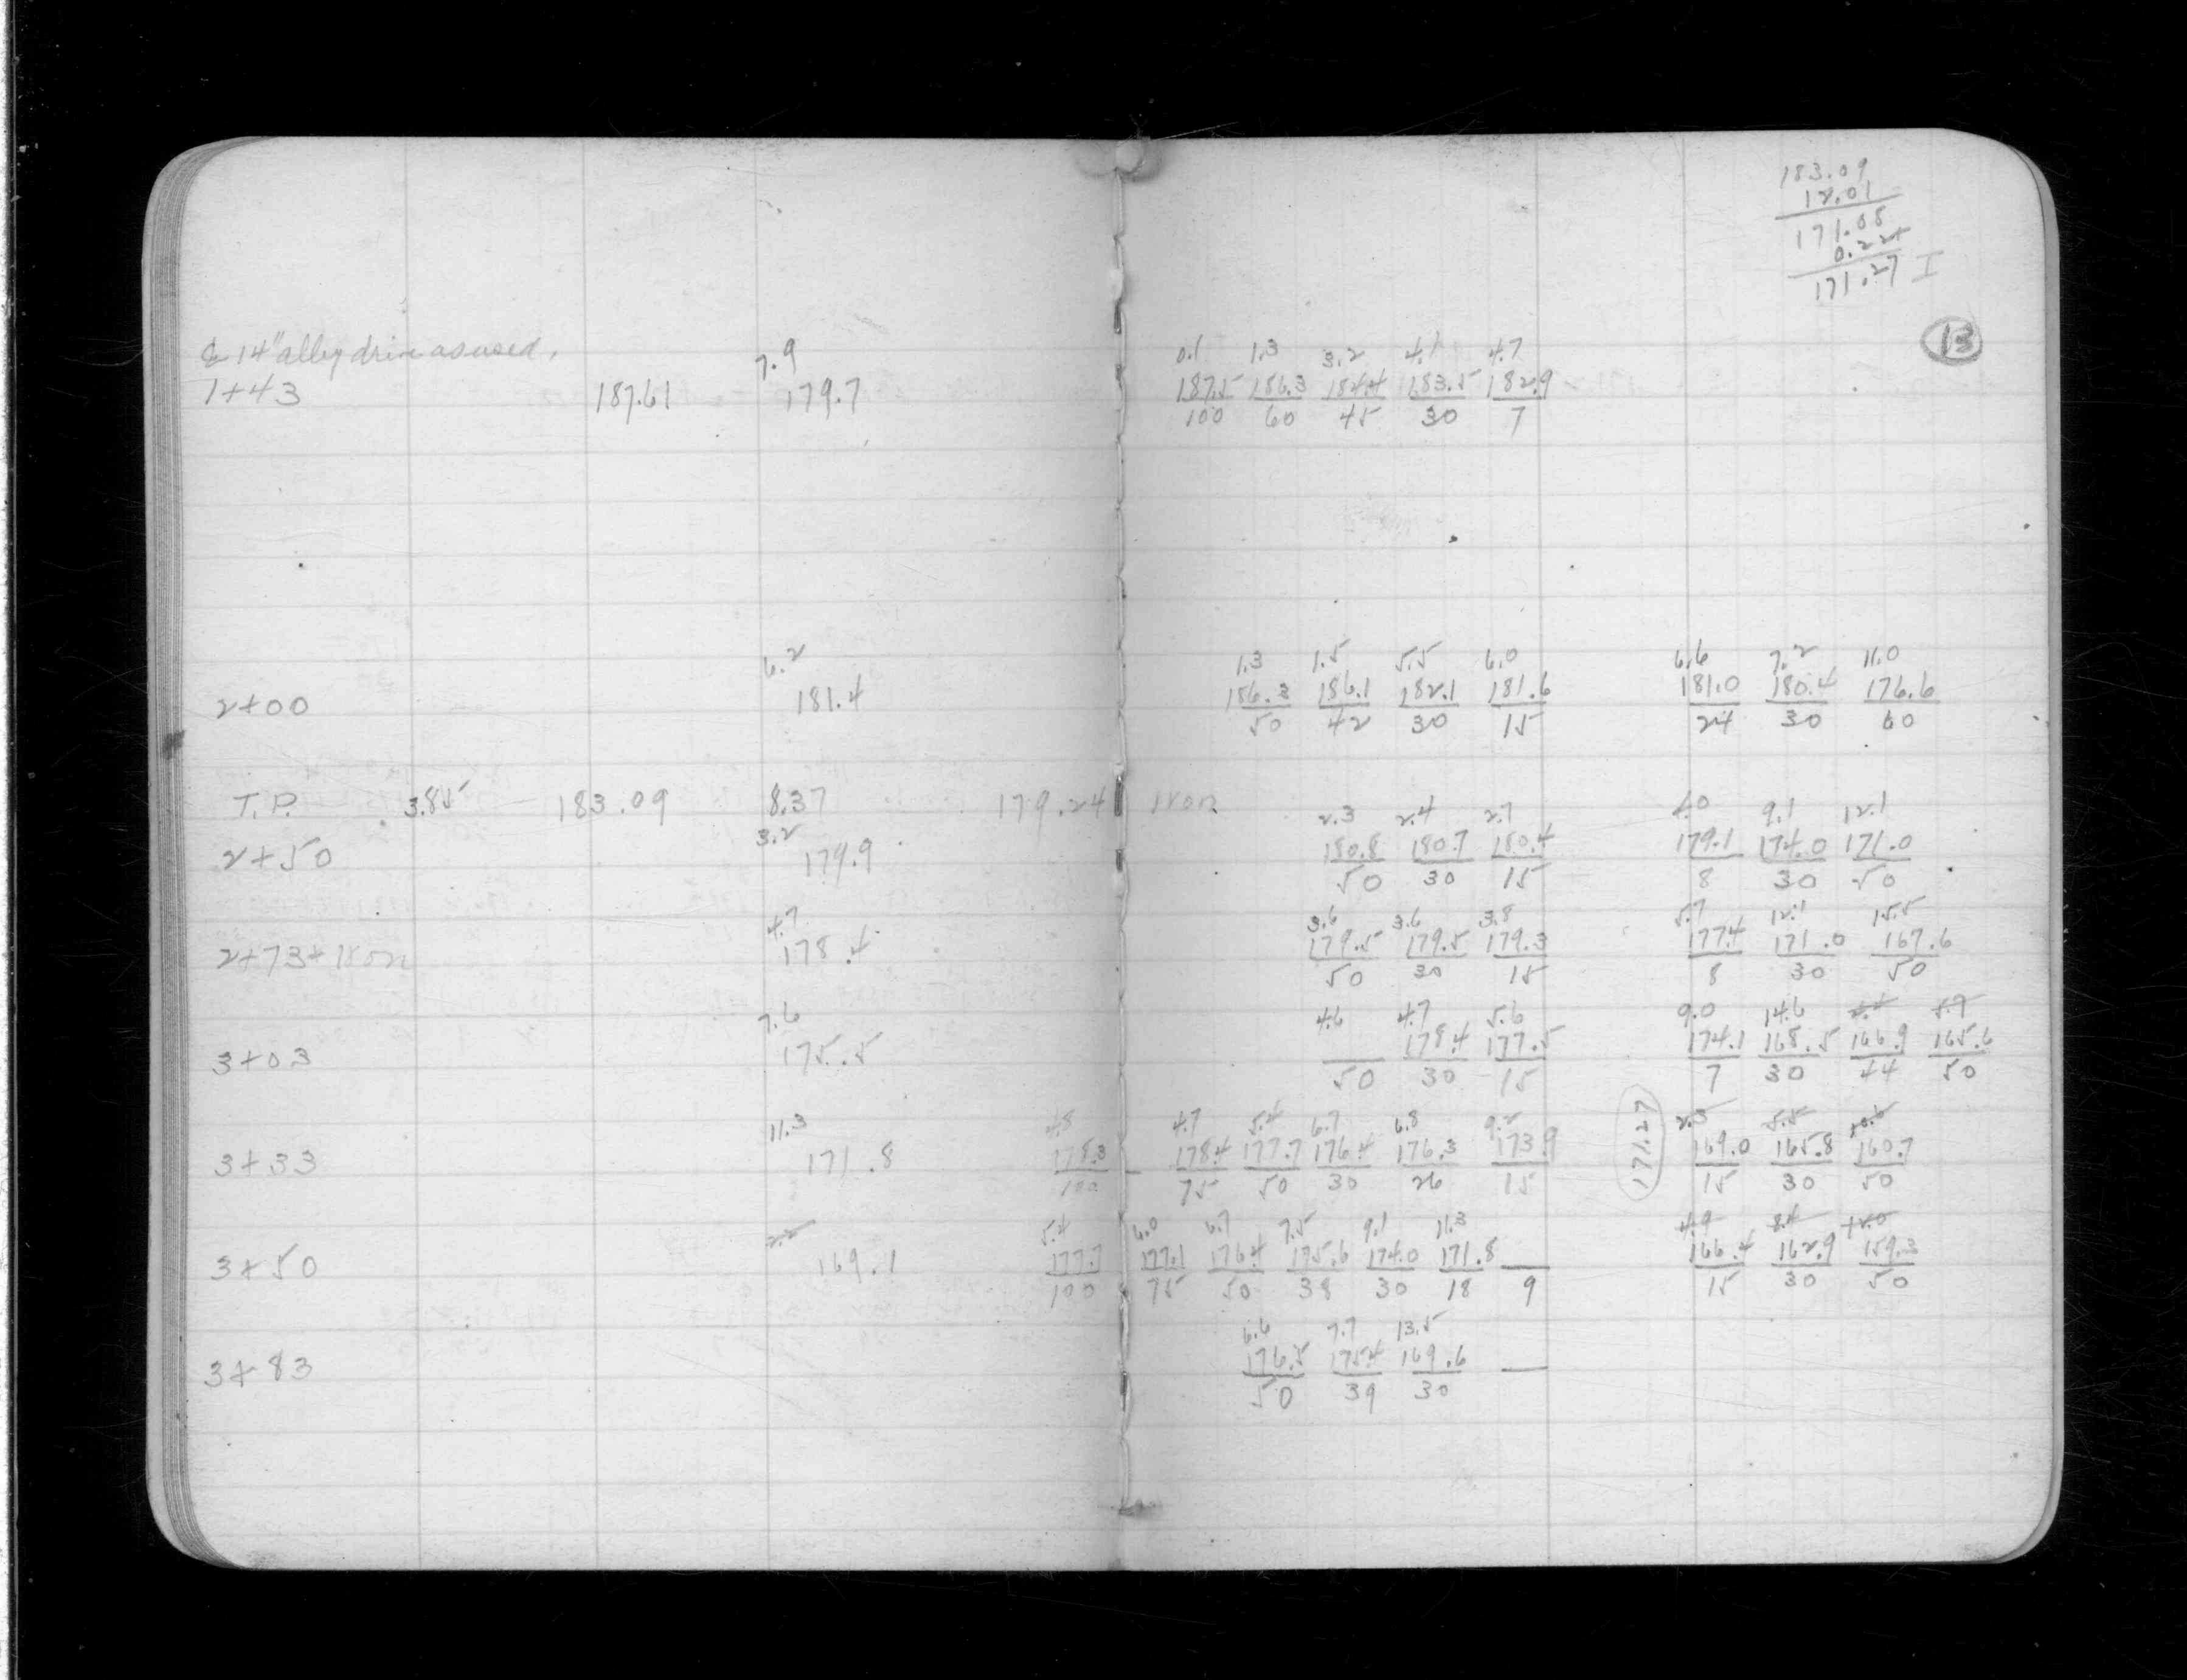 183.09
12.01
171.08
0.22+
171.27 I
13
14" alley drive as used,
7.9 0.1 1.3 3.2 4.1 4.7
1+43 187.61 179.7 187.5 186.3 184.4 183.5 182.9
100 60 45 30 7
6.2 1.3 1.5 5.5 6.0 6.6 7.2 11.0
2+00 181.4 186.3 186.1 182.1 181.6 181.0 180.4 176.6
50 42 30 15 24 30 60
T.P. 3.85 183.09 8.37 179.24 Iron
3.2 2.3 2.4 2.7 4.0 9.1 12.1
2+50 179.9 180.8 180.7 180.4 179.1 174.0 171.0
50 30 15 8 30 50
4.7 3.6 3.6 3.8 5.7 12.1 15.5
2+73+ Iron 178.4 179.5 179.5 179.3 177.4 171.0 167.6
50 30 15 8 30 50
7.6 4.6 4.7 5.6 9.0 14.6 4.4 5.7
3+03 175.5 178.4 177.5 174.1 168.5 166.9 165.6
50 30 15 7 30 44 50
11.3 4.8 4.7 5.4 6.7 6.8 9.2 171.27 2.3 5.5 10.6
3+33 171.8 178.3 178.4 177.7 176.4 176.3 173.9 169.0 165.8 160.7
100 75 50 30 26 15 15 30 50
2.2 5.4 6.0 6.7 7.5 9.1 11.3 4.9 8.4 12.0
3+50 169.1 177.7 177.1 176.4 175.6 174.0 171.8 166.4 162.9 159.3
100 75 50 38 30 18 9 15 30 50
6.6 7.7 13.5
3+83 176.5 175.4 169.6
50 39 30